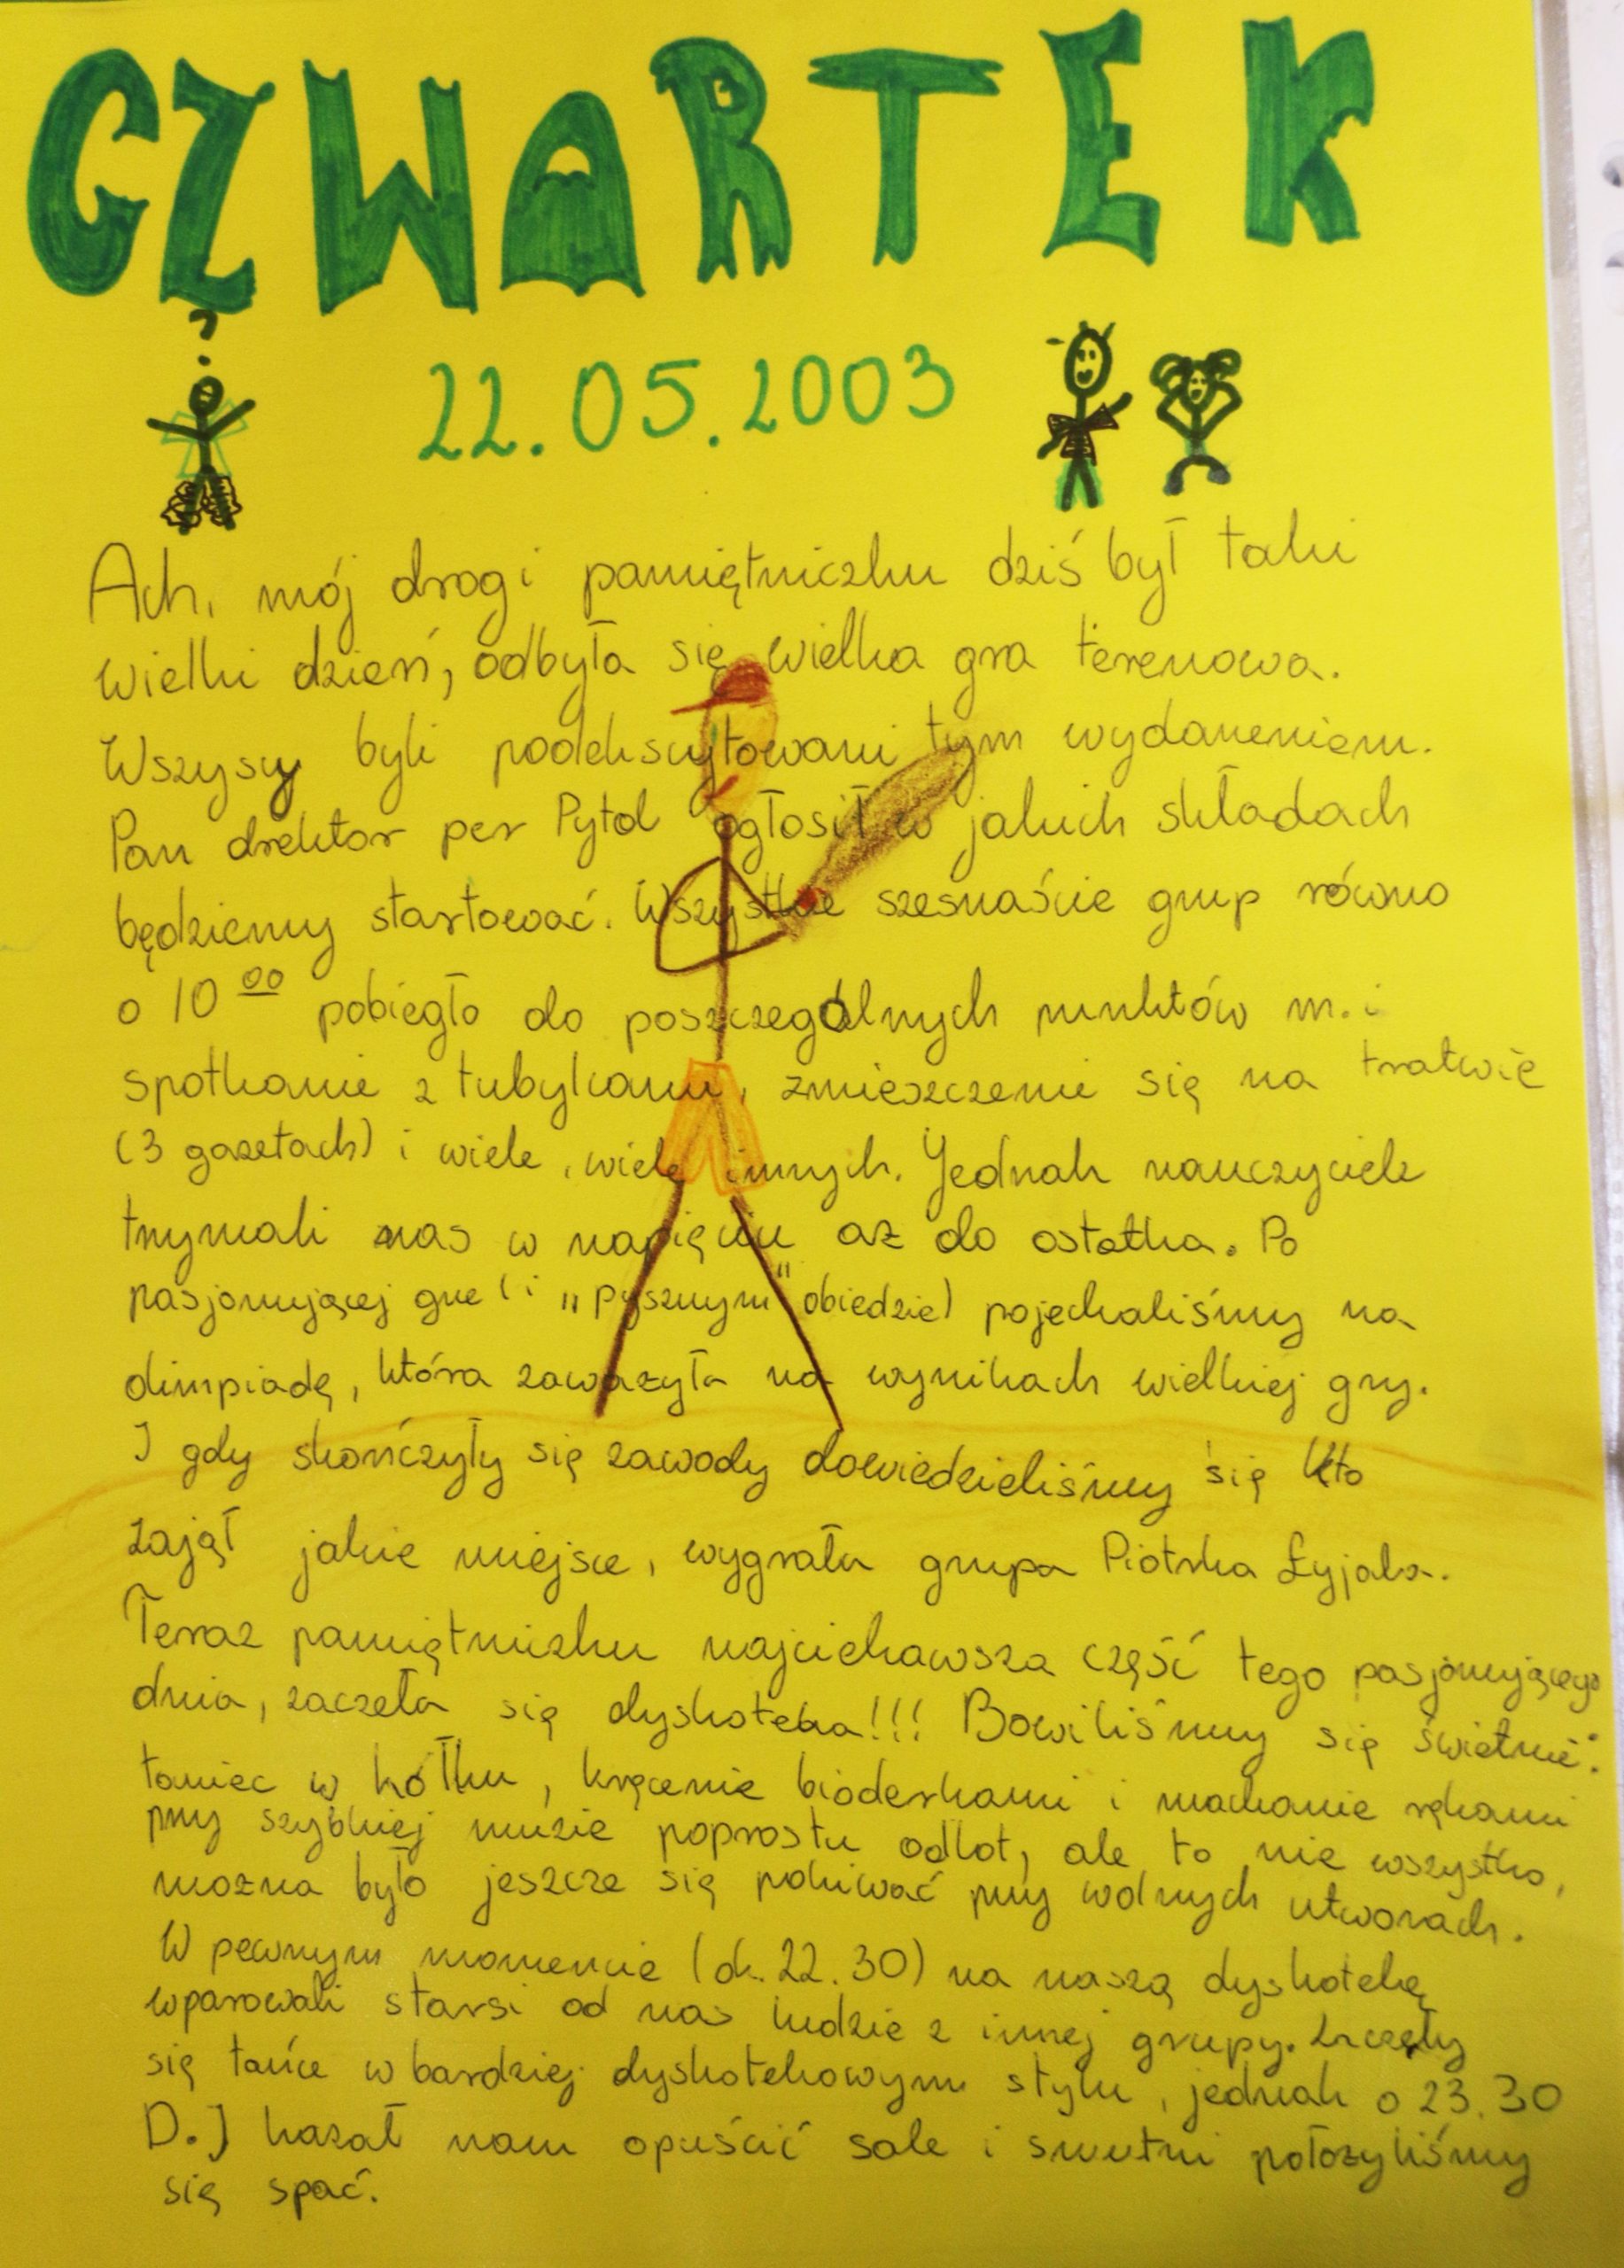 CZWARTEK
22.05.2003
Ach, mój drogi pamiętniczku dziś był taki
wielki dzień, odbyła się wielka gra terenowa.
Wszyscy byli podekscytowani tym wydarzeniem.
Pan drektor per Pytol ogłosił w jakich składach
będziemy startować. Wszystkie szesnaście grup równo
o 10 00 pobiegło do poszczególnych punktów m. i
spotkanie z tubylcami, zmieszczenie się na tratwie
(3 gazetach) i wiele, wiele innych. Jednak nauczyciele
trzymali nas w napięciu aż do ostatka. Po
pasjonującej grze (i „pysznym" obiedzie) pojechaliśmy na
olimpiadę, która zaważyła na wynikach wielkiej gry.
I gdy skończyły się zawody dowiedzieliśmy się kto
zajął jakie miejsce, wygrała grupa Piotrka Łyjaka.
Teraz pamiętniczku najciekawsza część tego pasjonującego
dnia, zaczeła się dyskoteka!!! Bawiliśmy się świetnie:
taniec w kółku, kręcenie bioderkami i machanie rękami
przy szybkiej muzie poprostu odlot, ale to nie wszystko,
można było jeszcze się pokiwać przy wolnych utworach.
W pewnym momencie (ok. 22.30) na naszą dyskotekę
wparowali starsi od nas ludzie z innej grupy. Zaczęły
się tańce w bardziej dyskotekowym stylu, jednak o 23.30
D.J kazał nam opuścić sale i smutni położyliśmy
się spać.